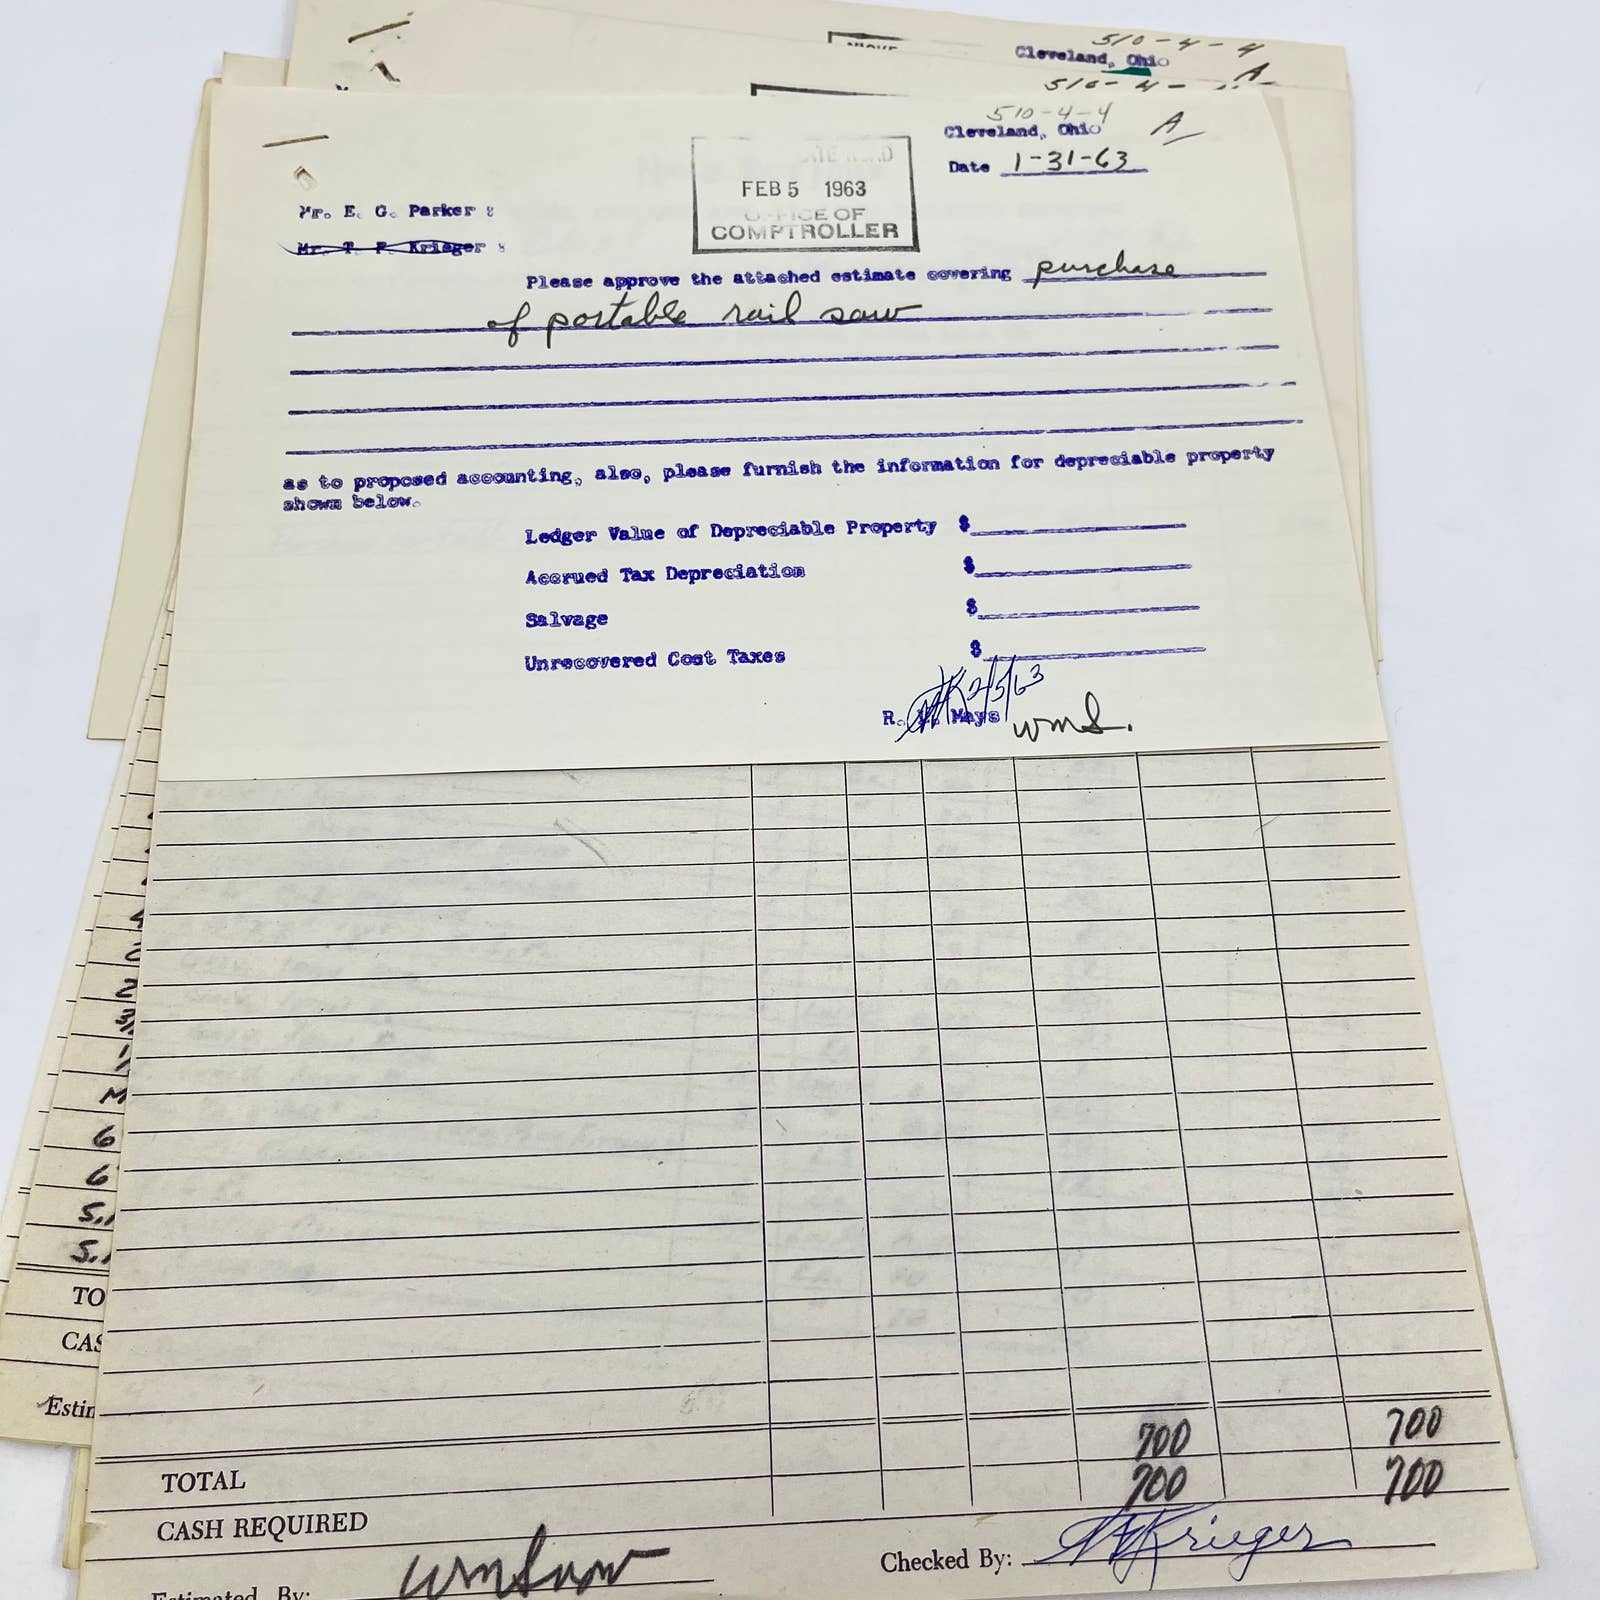 510-4-4
Cleveland, Ohio
A
510-4-
510-4-4
Cleveland, Ohio A
Date 1-31-63
FEB 5 1963
OFFICE OF
COMPTROLLER
Mr. E. G. Parker :
Mr. T. F. Krieger :
Please approve the attached estimate covering purchase
of portable rail saw
as to proposed accounting, also, please furnish the information for depreciable property
shown below.
Ledger Value of Depreciable Property $
Accrued Tax Depreciation $
Salvage $
Unrecovered Cost Taxes $
2/5/63
R. Mays wms.
M
6
6
5.
5.
TO
CAS
Estim
700 700
TOTAL 700 700
CASH REQUIRED
Estimated By:
Checked By: Krieger